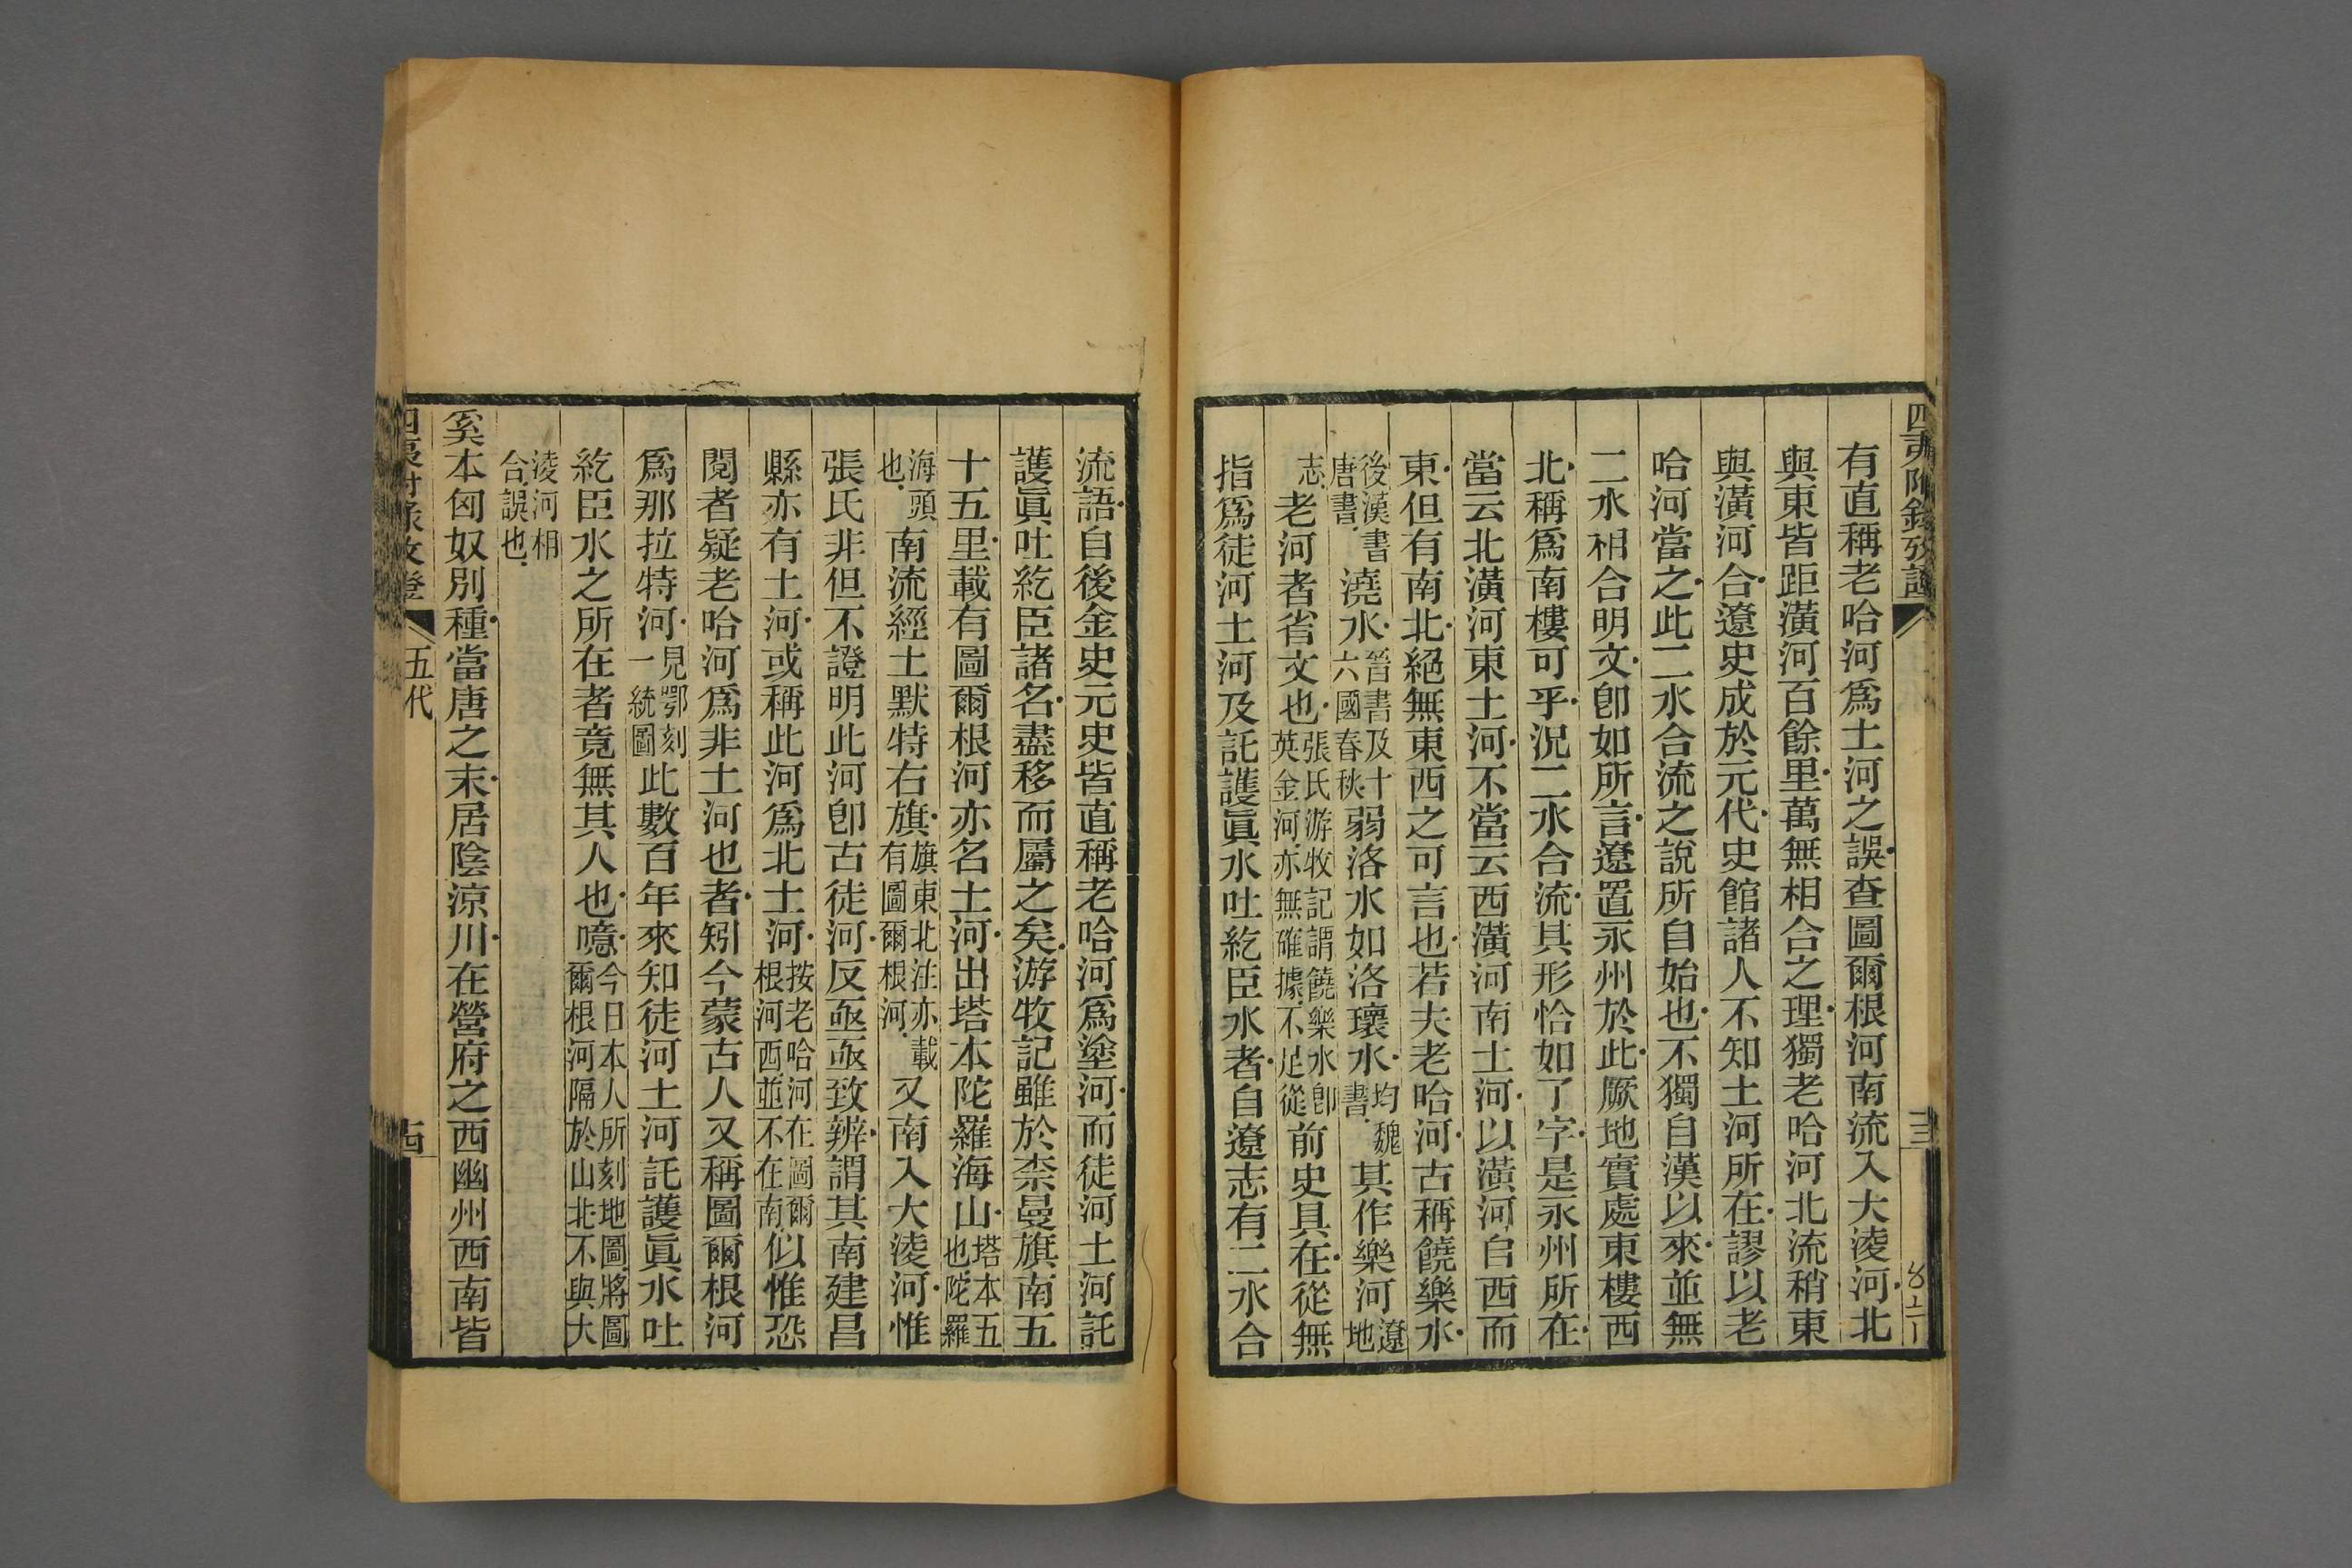 四夷附錄攷證
十三
有直稱老哈河爲土河之誤查圖爾根河南流入大淩河北
與東皆距潢河百餘里萬無相合之理獨老哈河北流稍東
與潢河合遼史成於元代史館諸人不知土河所在謬以老
哈河當之此二水合流之說所自始也不獨自漢以來並無
二水相合明文卽如所言遼置永州於此厥地實處東樓西
北稱爲南樓可乎況二水合流其形恰如了字是永州所在
當云北潢河東土河不當云西潢河南土河以潢河自西而
東但有南北絕無東西之可言也若夫老哈河古稱饒樂水
後漢書唐書澆水晉書及十六國春秋弱洛水如洛瓌水均魏書其作樂河遼地
志老河者省文也張氏游牧記謂饒樂水卽英金河亦無確據不足從前史具在從無
指爲徒河土河及託護眞水吐紇臣水者自遼志有二水合
流語自後金史元史皆直稱老哈河爲塗河而徒河土河託
護眞吐紇臣諸名盡移而屬之矣游牧記雖於柰曼旗南五
十五里載有圖爾根河亦名土河出塔本陀羅海山塔本五也陀羅
海頭也南流經土默特右旗旗東北注亦載有圖爾根河又南入大淩河惟
張氏非但不證明此河卽古徒河反亟亟致辨謂其南建昌
縣亦有土河或稱此河爲北土河按老哈河在圖爾根河西並不在南似惟恐
閱者疑老哈河爲非土河也者矧今蒙古人又稱圖爾根河
爲那拉特河見鄂刻一統圖此數百年來知徒河土河託護眞水吐
紇臣水之所在者竟無其人也噫今日本人所刻地圖將圖爾根河隔於山北不與大
淩河相合誤也
奚本匈奴別種當唐之末居陰涼川在營府之西幽州西南皆
四夷附錄攷證
五代
十四